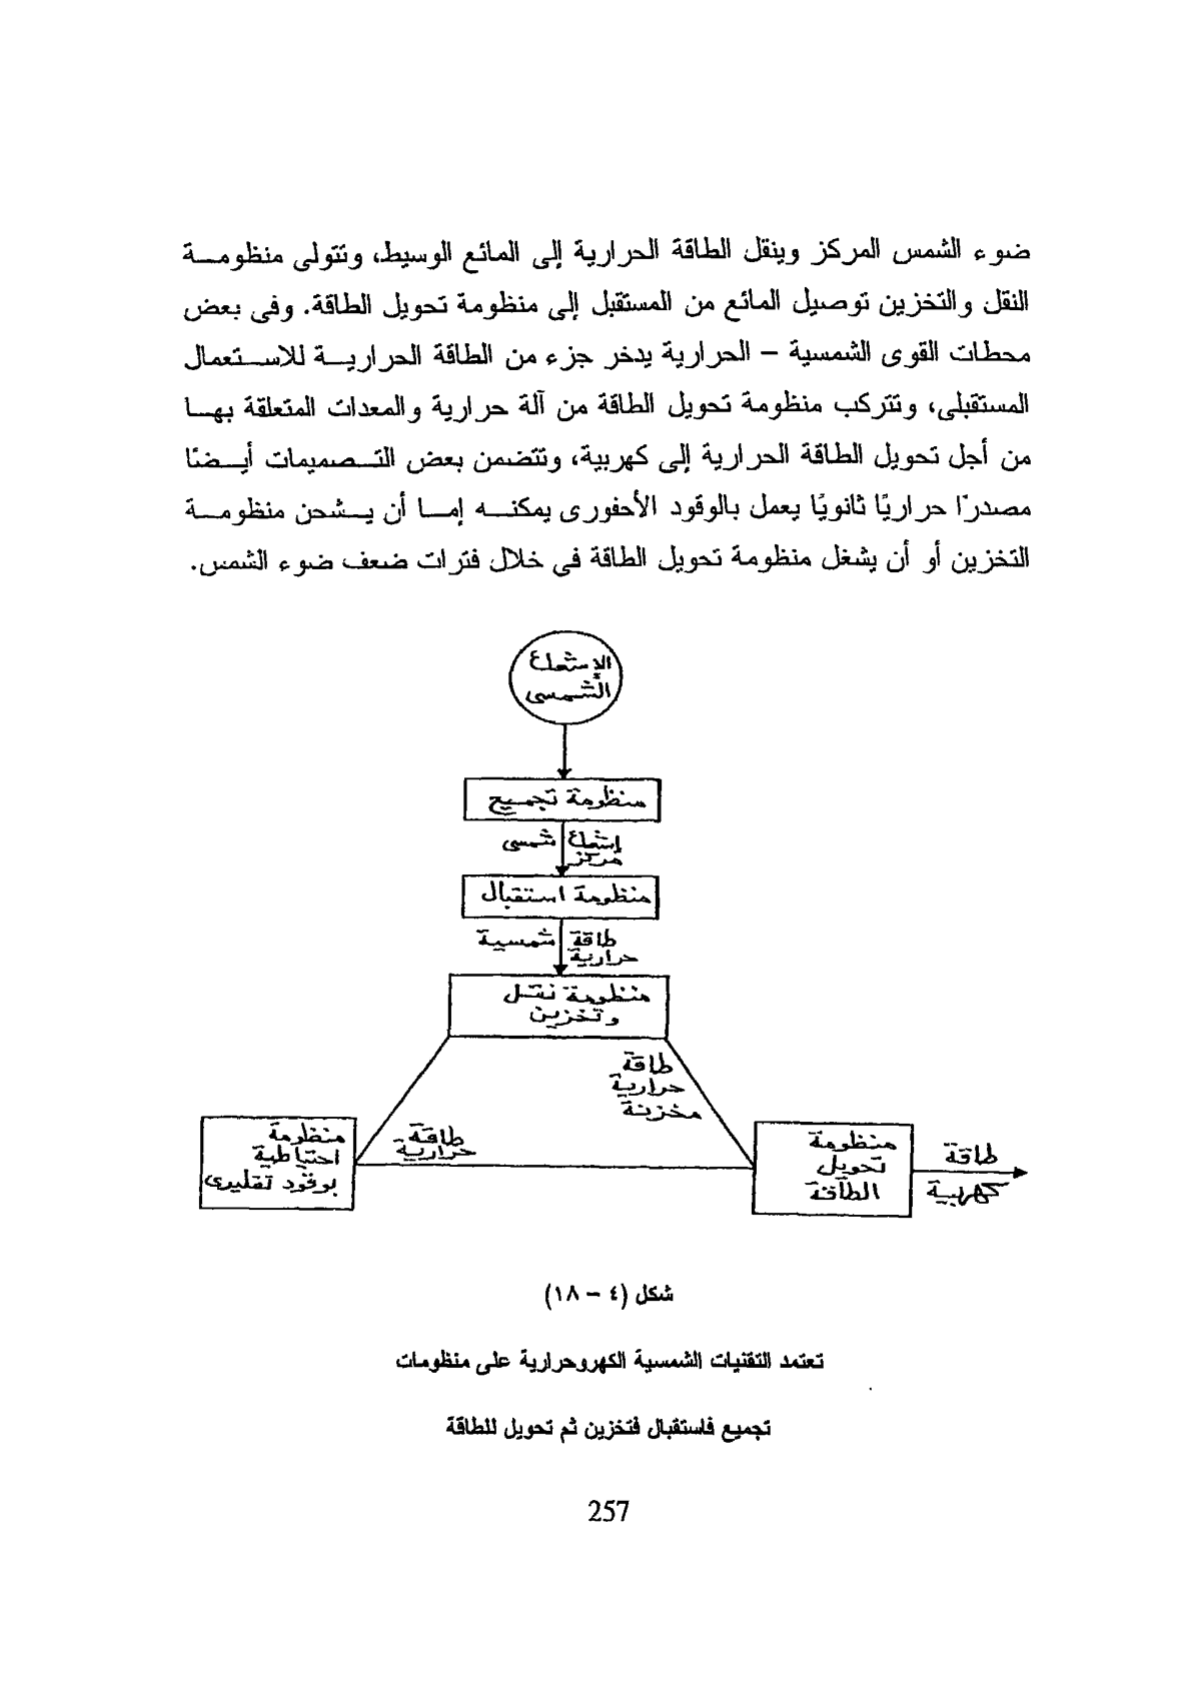 ضوء الشمس المركز وينقل الطاقة الحرارية إلى المائع الوسيط، وتتولى منظومة
النقل والتخزين توصيل المائع من المستقبل إلى منظومة تحويل الطاقة. وفى بعض
محطات القوى الشمسية – الحرارية يدخر جزء من الطاقة الحرارية للاستعمال
المستقبلى، وتتركب منظومة تحويل الطاقة من آلة حرارية والمعدات المتعلقة بها
من أجل تحويل الطاقة الحرارية إلى كهربية، وتتضمن بعض التصميمات أيضًا
مصدرًا حراريًا ثانويًا يعمل بالوقود الأحفورى يمكنه إما أن يشحن منظومة
التخزين أو أن يشغل منظومة تحويل الطاقة فى خلال فترات ضعف ضوء الشمس.
الإشعاع
الشمسى
منظومة تجميع
إشعاع شمسى
مركز
منظومة استقبال
طاقة شمسية
حرارية
منظومة نقل
وتخزين
طاقة
حرارية
مخزنة
منظومة
احتياطية
بوقود تقليدى
طاقة
حرارية
منظومة
تحويل
الطاقة
طاقة
كهربية
شكل (٤ – ١٨)
تعتمد التقنيات الشمسية الكهروحرارية على منظومات
تجميع فاستقبال فتخزين ثم تحويل للطاقة
257